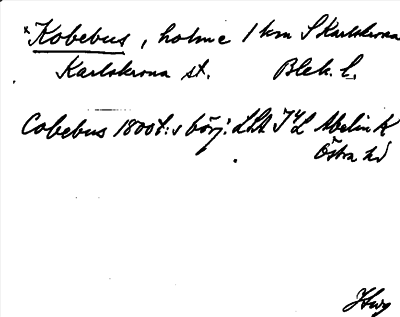 *Kobebus, holme 1 km S Karlskrona
Karlskrona st. Blek. l.
Cobebus 1800t:s börj: LLA Abelin K
Östra hd
Hwg